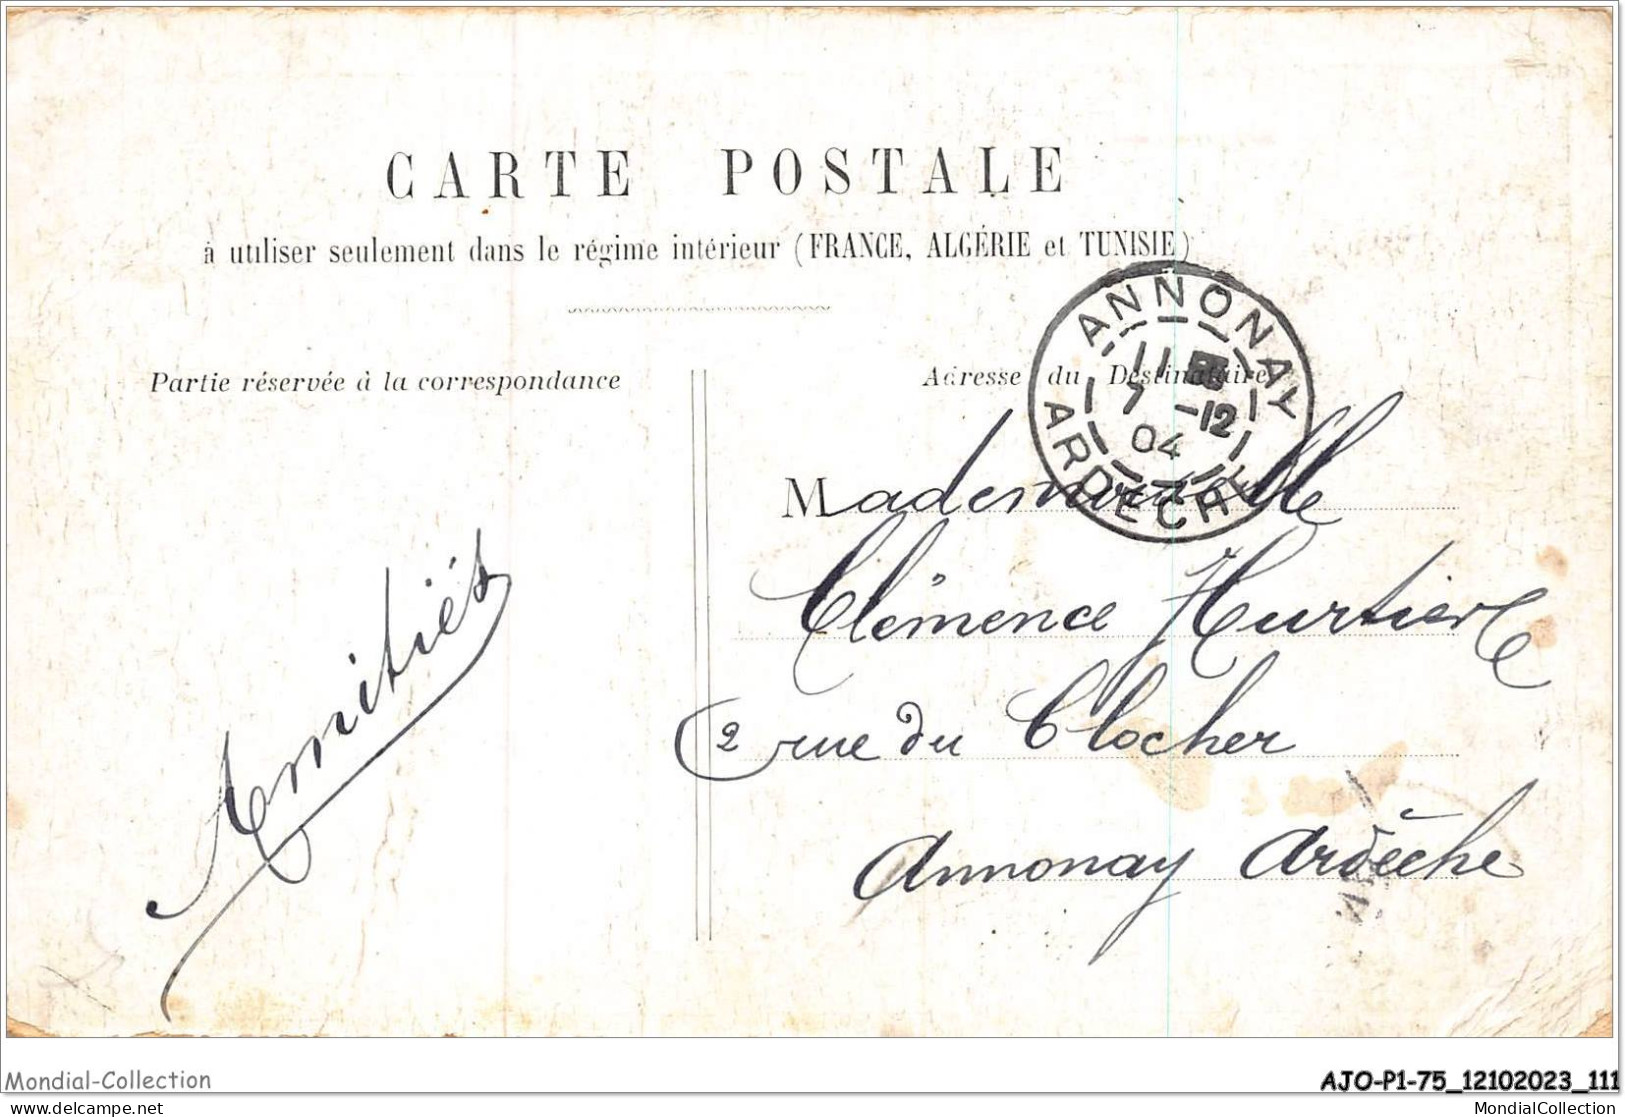 CARTE POSTALE
à utiliser seulement dans le régime intérieur (FRANCE, ALGÉRIE et TUNISIE)
Partie réservée à la correspondance
Adresse du Destinataire
ANNONAY
11
7 -12
04
ARDECHE
Mademoiselle
Clémence Hurtier
2 rue du Clocher
Annonay Ardèche
Amitiés
Mondial-Collection
AJO-P1-75_12102023_111
www.delcampe.net
MondialCollection